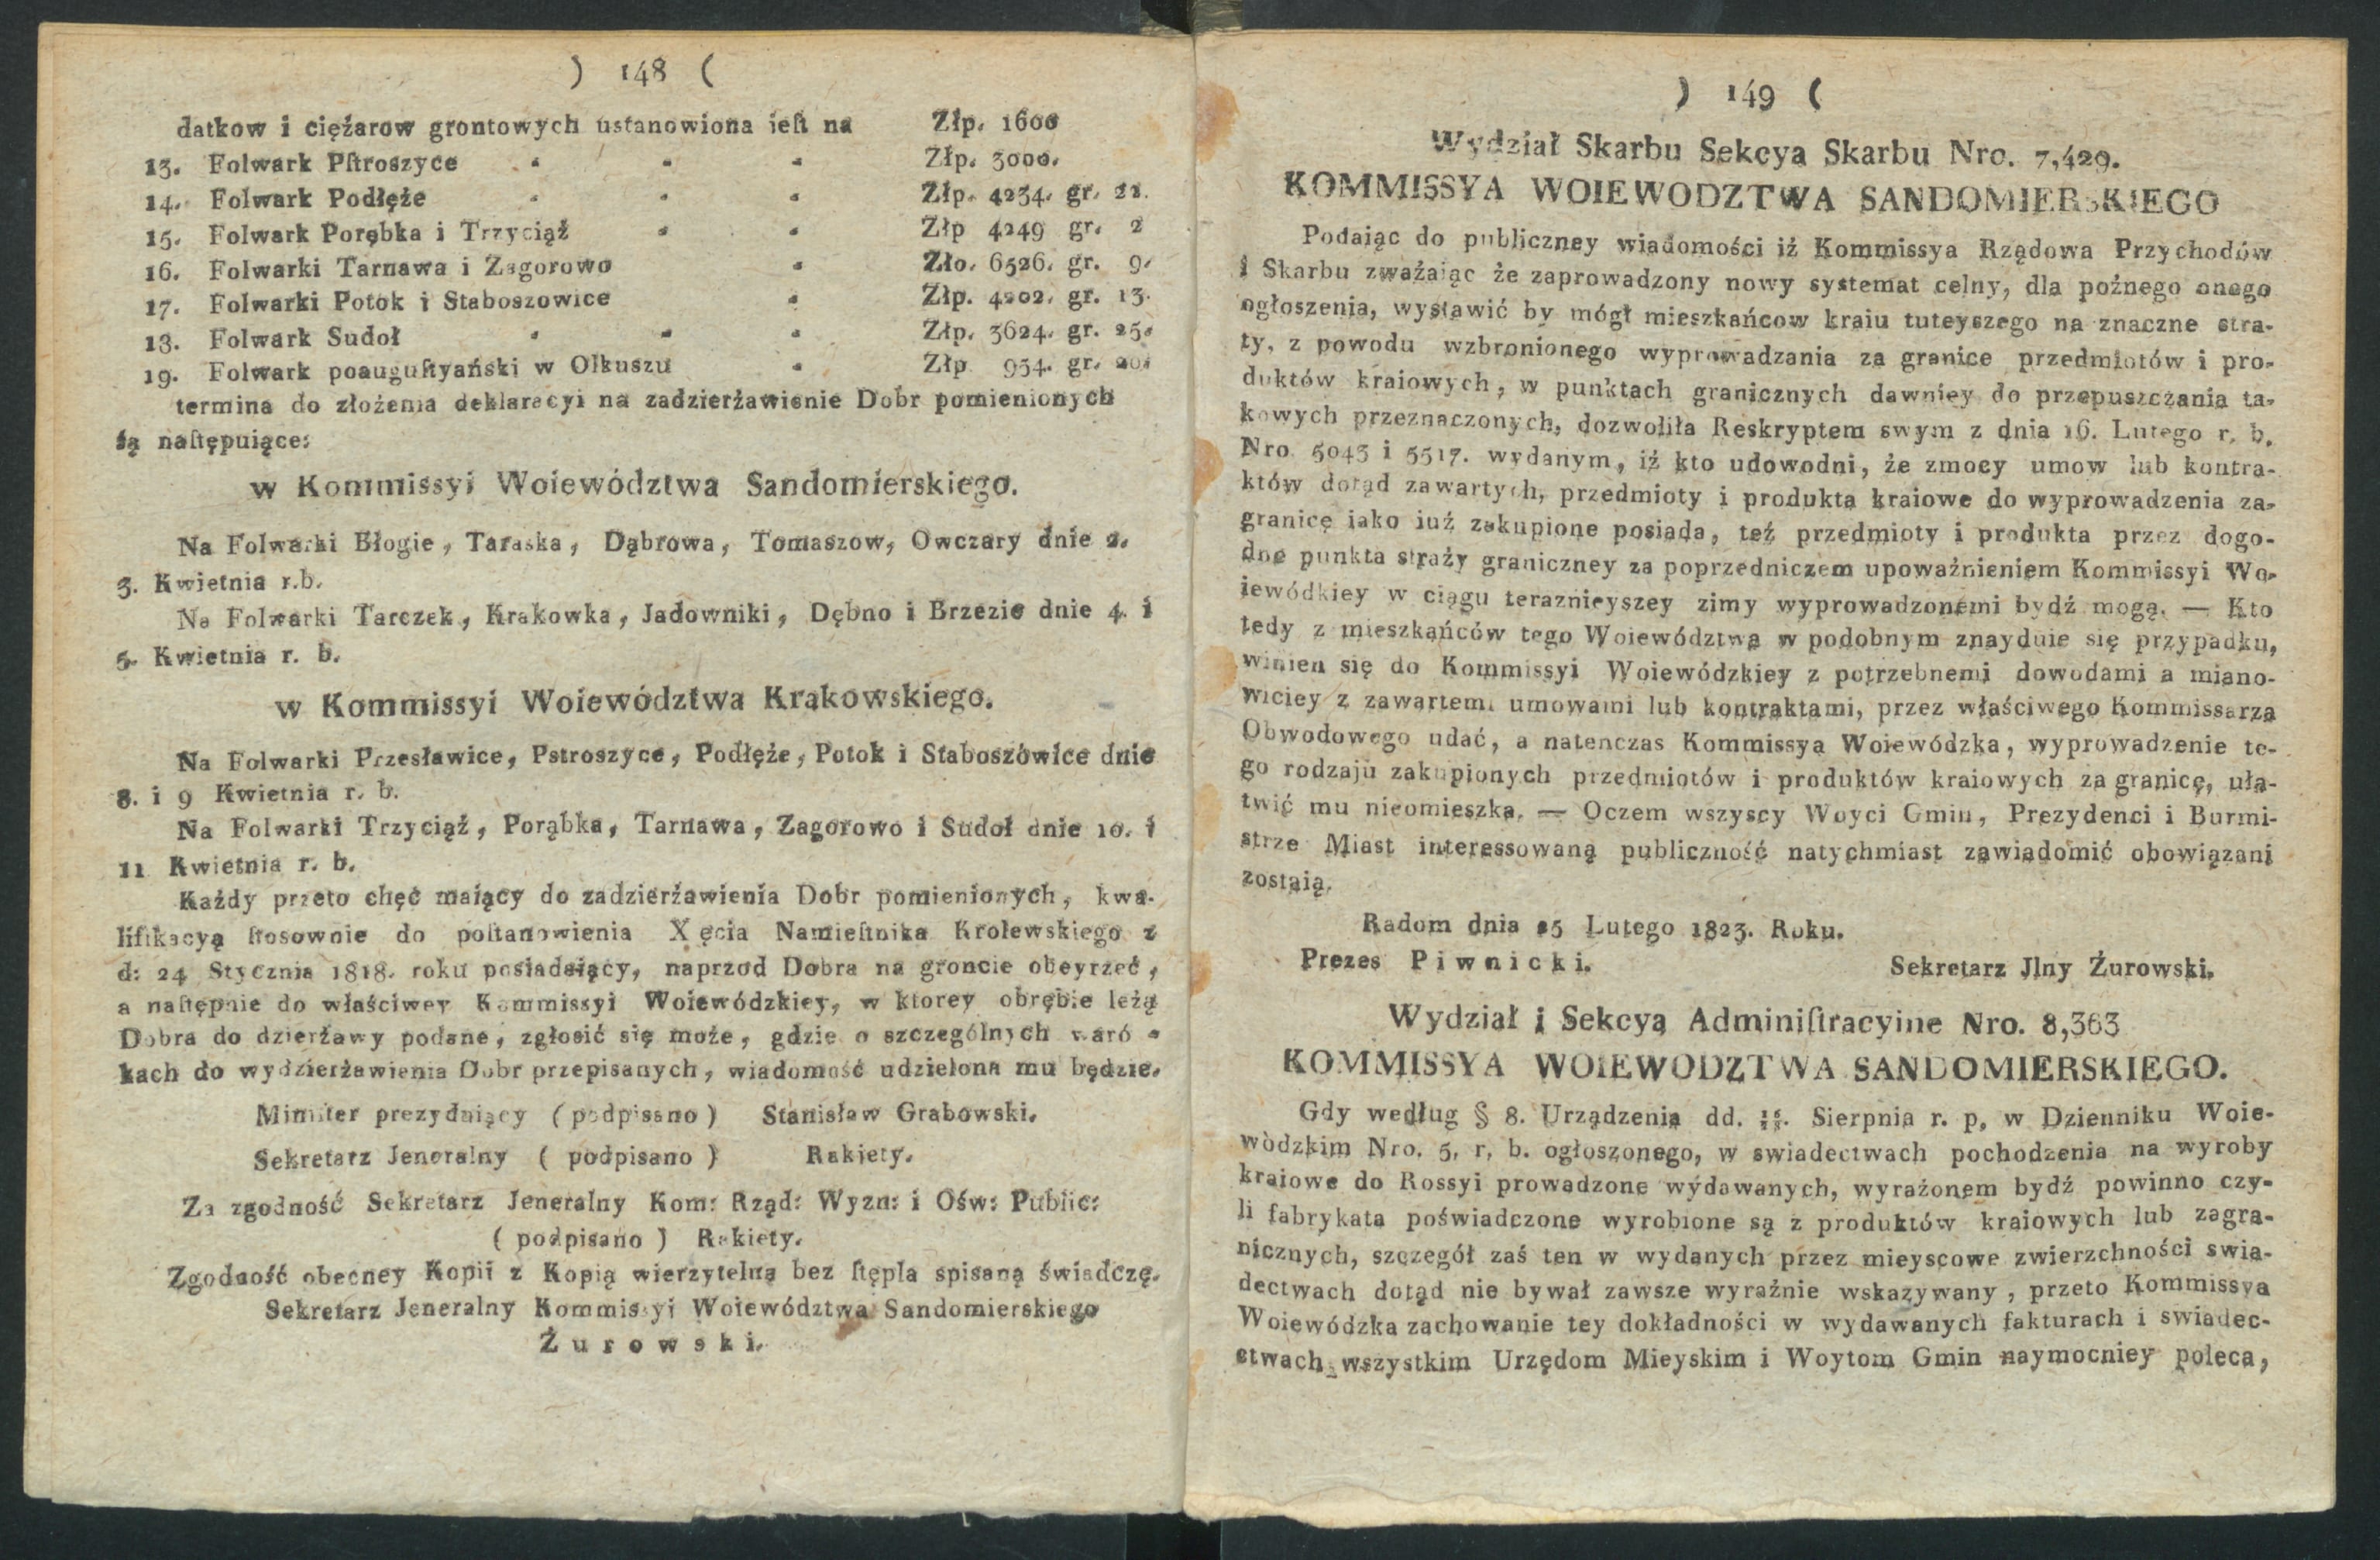 ) 148 (
datkow i ciężarow grontowych ustanowiona ieſt na Złp. 1600
13. Folwark Pſtroszyce - - - Złp. 3000.
14. Folwark Podłęże - - - Złp. 4234. gr. 22.
15. Folwark Porąbka i Trzyciąż - - Złp 4249 gr. 2
16. Folwarki Tarnawa i Zagorowo - Zło. 6526. gr. 9.
17. Folwarki Potok i Staboszowice - Złp. 4202. gr. 13.
18. Folwark Sudoł - - - Złp. 3624. gr. 25.
19. Folwark poauguſtyański w Olkuszu - Złp 954. gr. 20.
termina do złożenia deklaracyi na zadzierżawienie Dobr pomienionych
są naſtępuiące:
w Kommissyi Woiewództwa Sandomierskiego.
Na Folwarki Błogie, Taraska, Dąbrowa, Tomaszow, Owczary dnie 2.
3. Kwietnia r.b.
Na Folwarki Tarczek, Krakowka, Jadowniki, Dębno i Brzezie dnie 4. i
5. Kwietnia r. b.
w Kommissyi Woiewództwa Krakowskiego.
Na Folwarki Przesławice, Pstroszyce, Podłęże, Potok i Staboszowice dnie
8. i 9 Kwietnia r. b.
Na Folwarki Trzyciąż, Porąbka, Tarnawa, Zagorowo i Sudoł dnie 10. i
11 Kwietnia r. b.
Każdy przeto chęć maiący do zadzierżawienia Dobr pomienionych, kwa-
lifikacyą ſtosownie do poſtanowienia Xęcia Namieſtnika Krolewskiego z
d: 24 Stycznia 1818. roku posiadaiący, naprzod Dobra na groncie obeyrzeć,
a naſtępnie do właściwey Kommissyi Woiewódzkiey, w ktorey obrębie leżą
Dobra do dzierżawy podane, zgłosić się może, gdzie o szczególnych waró -
kach do wydzierżawienia Dobr przepisanych, wiadomość udzielona mu będzie.
Miniſter prezyduiący (podpisano) Stanisław Grabowski.
Sekretarz Jeneralny ( podpisano ) Rakiety.
Za zgodność Sekretarz Jeneralny Kom: Rząd: Wyzn: i Ośw: Public:
( podpisano ) Rakiety.
Zgodność obecney Kopii z Kopią wierzytelną bez ſtępla spisaną świadczę.
Sekretarz Jeneralny Kommissyi Woiewództwa Sandomierskiego
Żurowski.
) 149 (
Wydział Skarbu Sekcya Skarbu Nro. 7,429.
KOMMISSYA WOIEWODZTWA SANDOMIERSKIEGO
Podaiąc do publiczney wiadomości iż Kommissya Rządowa Przychodów
i Skarbu zważaiąc że zaprowadzony nowy systemat celny, dla poźnego onego
ogłoszenia, wystawić by mógł mieszkańcow kraiu tuteyszego na znaczne stra-
ty, z powodu wzbronionego wyprowadzania za granice przedmiotów i pro-
duktów kraiowych, w punktach granicznych dawniey do przepuszczania ta-
kowych przeznaczonych, dozwoliła Reskryptem swym z dnia 16. Lutego r. b.
Nro 5043 i 5517. wydanym, iż kto udowodni, że zmocy umow lub kontra-
któw dotąd zawartych, przedmioty i produkta kraiowe do wyprowadzenia za-
granicę iako iuż zakupione posiada, też przedmioty i produkta przez dogo-
dne punkta straży graniczney za poprzedniczem upoważnieniem Kommissyi Wo-
iewódkiey w ciągu teraznieyszey zimy wyprowadzonemi bydź mogą. — Kto
tedy z mieszkańców tego Woiewództwa w podobnym znayduie się przypadku,
winien się do Kommissyi Woiewódzkiey z potrzebnemi dowodami a miano-
wiciey z zawartemi umowami lub kontraktami, przez właściwego Kommissarza
Obwodowego udać, a natenczas Kommissya Woiewódzka, wyprowadzenie te-
go rodzaju zakupionych przedmiotów i produktów kraiowych za granicę, uła-
twić mu nieomieszka. — Oczem wszyscy Woyci Gmin, Prezydenci i Burmi-
strze Miast interessowaną publiczność natychmiast zawiadomić obowiązani
zostaią.
Radom dnia 25 Lutego 1823. Roku.
Prezes Piwnicki. Sekretarz Jlny Żurowski.
Wydział i Sekcya Adminiſtracyine Nro. 8,363
KOMMISSYA WOIEWODZTWA SANDOMIERSKIEGO.
Gdy według § 8. Urządzenia dd. Sierpnia r. p, w Dzienniku Woie-
wòdzkim Nro. 5, r, b. ogłoszonego, w swiadectwach pochodzenia na wyroby
kraiowe do Rossyi prowadzone wydawanych, wyrażonem bydź powinno czy-
li fabrykata poświadczone wyrobione są z produktów kraiowych lub zagra-
nicznych, szczegół zaś ten w wydanych przez mieyscowe zwierzchności swia-
dectwach dotąd nie bywał zawsze wyraźnie wskazywany, przeto Kommissya
Woiewódzka zachowanie tey dokładności w wydawanych fakturach i swiadec-
ctwach wszystkim Urzędom Mieyskim i Woytom Gmin naymocniey poleca,